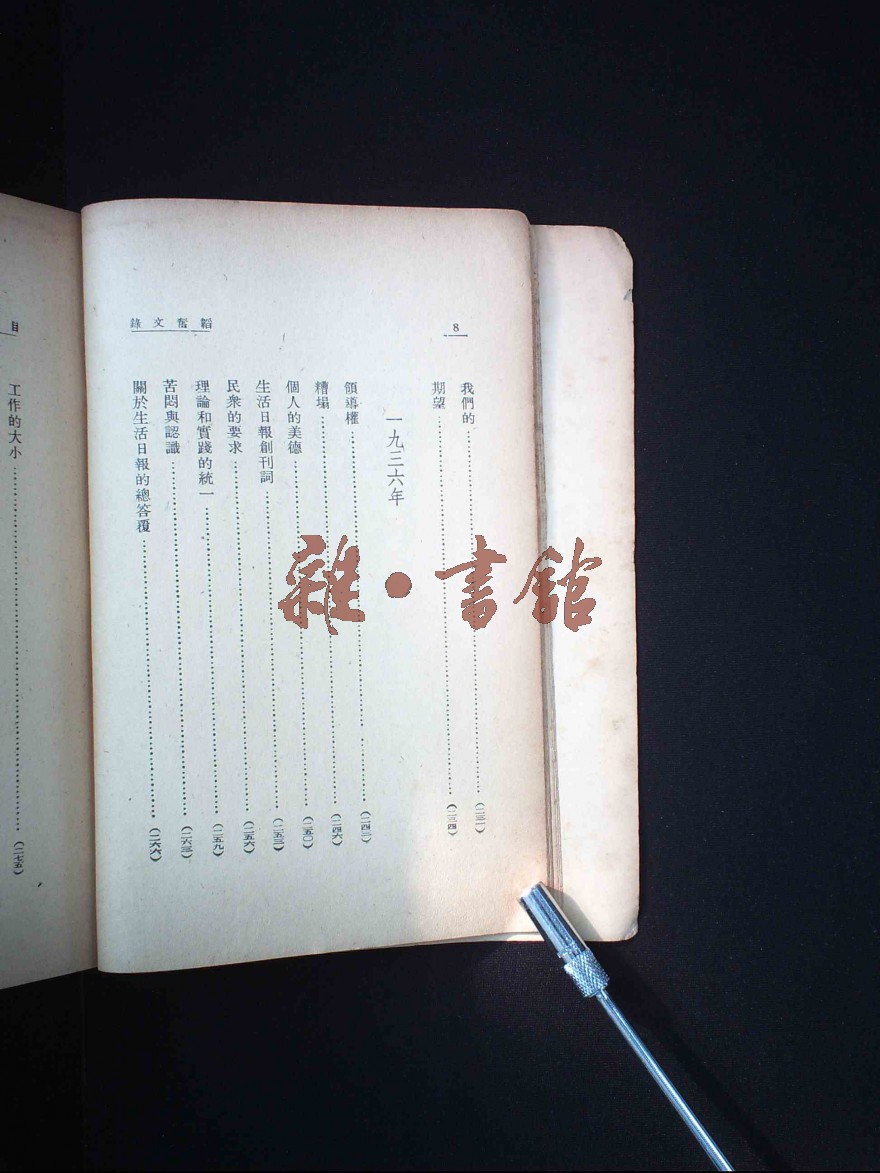 8
韜奮文錄
我們的……(二三一)
期望……(二三四)
一九三六年
領導權……(二四三)
糟塌……(二四六)
個人的美德……(二五〇)
生活日報創刊詞……(二五三)
民衆的要求……(二五六)
理論和實踐的統一……(二五九)
苦悶與認識……(二六三)
關於生活日報的總答覆……(二六六)
目
工作的大小……(二七五)
雜·書館